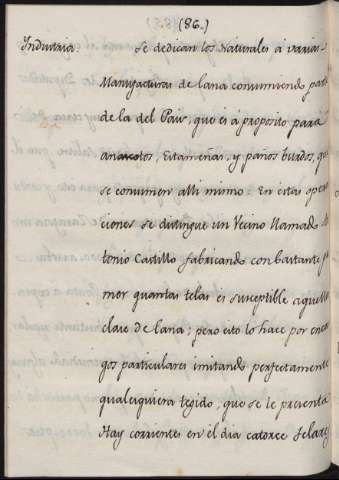 (86.)
Industria Se dedican los Naturales á varias
Manufacturas de lana consumiendo parte
de la del Pais, que es á proposito para
anascotes, Estameñas, y paños burdos, que
se consumen alli mismo. En estas opera
ciones se distingue un Vecino llamado An
tonio Castillo fabricando con bastante pri
mor quantas telas es susceptible aquella
clase de lana; pero esto lo hace por encar
gos particulares imitando perfectamente
qualesquiera tegido, que se le presenta
Hay corrientes en el dia catorce telares